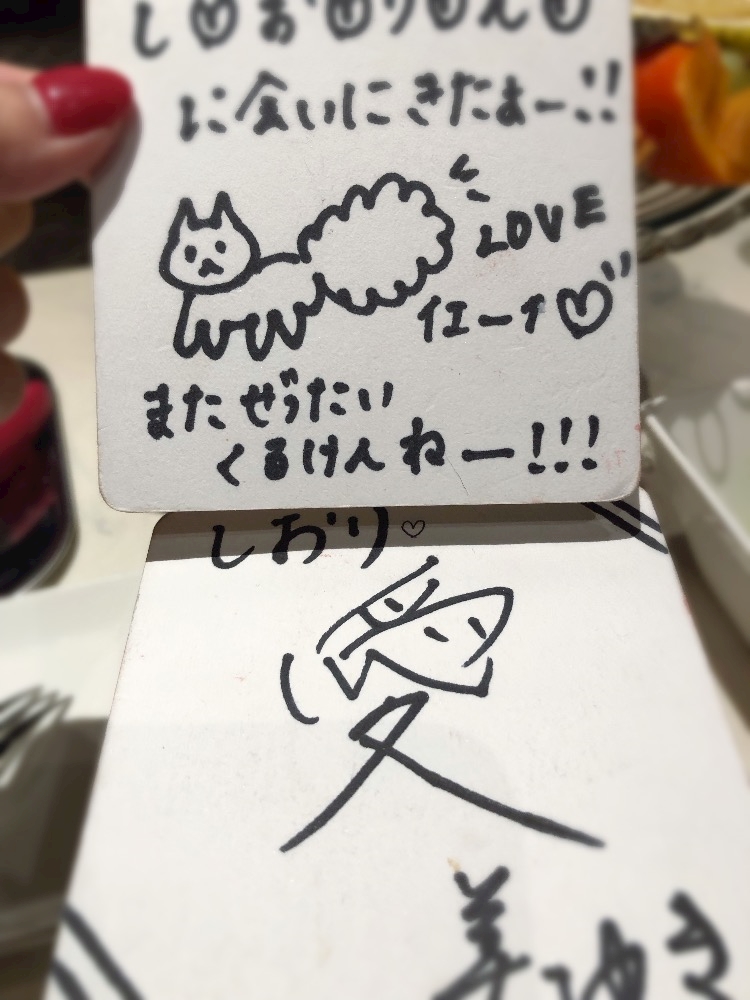 に会いにきたよー!!
LOVE
イエーイ♡
またぜったい
くるけんねー!!!
しおり♡
愛
美ゆき